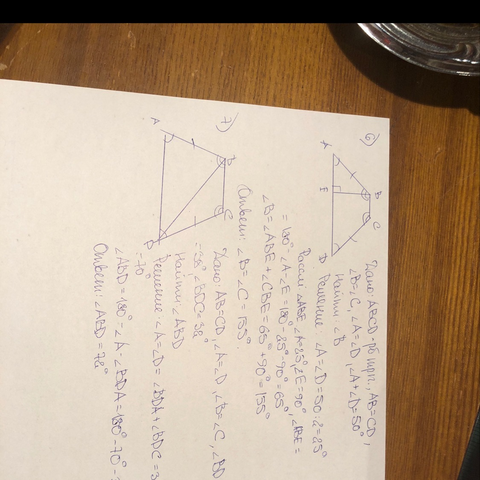 6)
A
B
C
D
E
Дано: ABCD-рб трап., AB=CD,
∠B=∠C, ∠A=∠D, ∠A+∠D=50°
Найти: ∠B
Решение: ∠A=∠D=50:2=25°
Рассм. ∠ABE, ∠A=25°, ∠E=90°, ∠ABE=
=180°-∠A-∠E=180°-25°-90°=65°,
∠B=∠ABE+∠CBE=65°+90°=155°
Ответ: ∠B=∠C=155°.
7)
A
B
C
D
Дано: AB=CD, ∠A=∠D, ∠B=∠C, ∠BD
∠BDC=32°
Найти ∠ABD
Решение: ∠A=∠D=∠BDA+∠BDC=3
=70°
∠ABD=180°-∠A-∠BDA=180°-70°-
Ответ: ∠ABD=72°